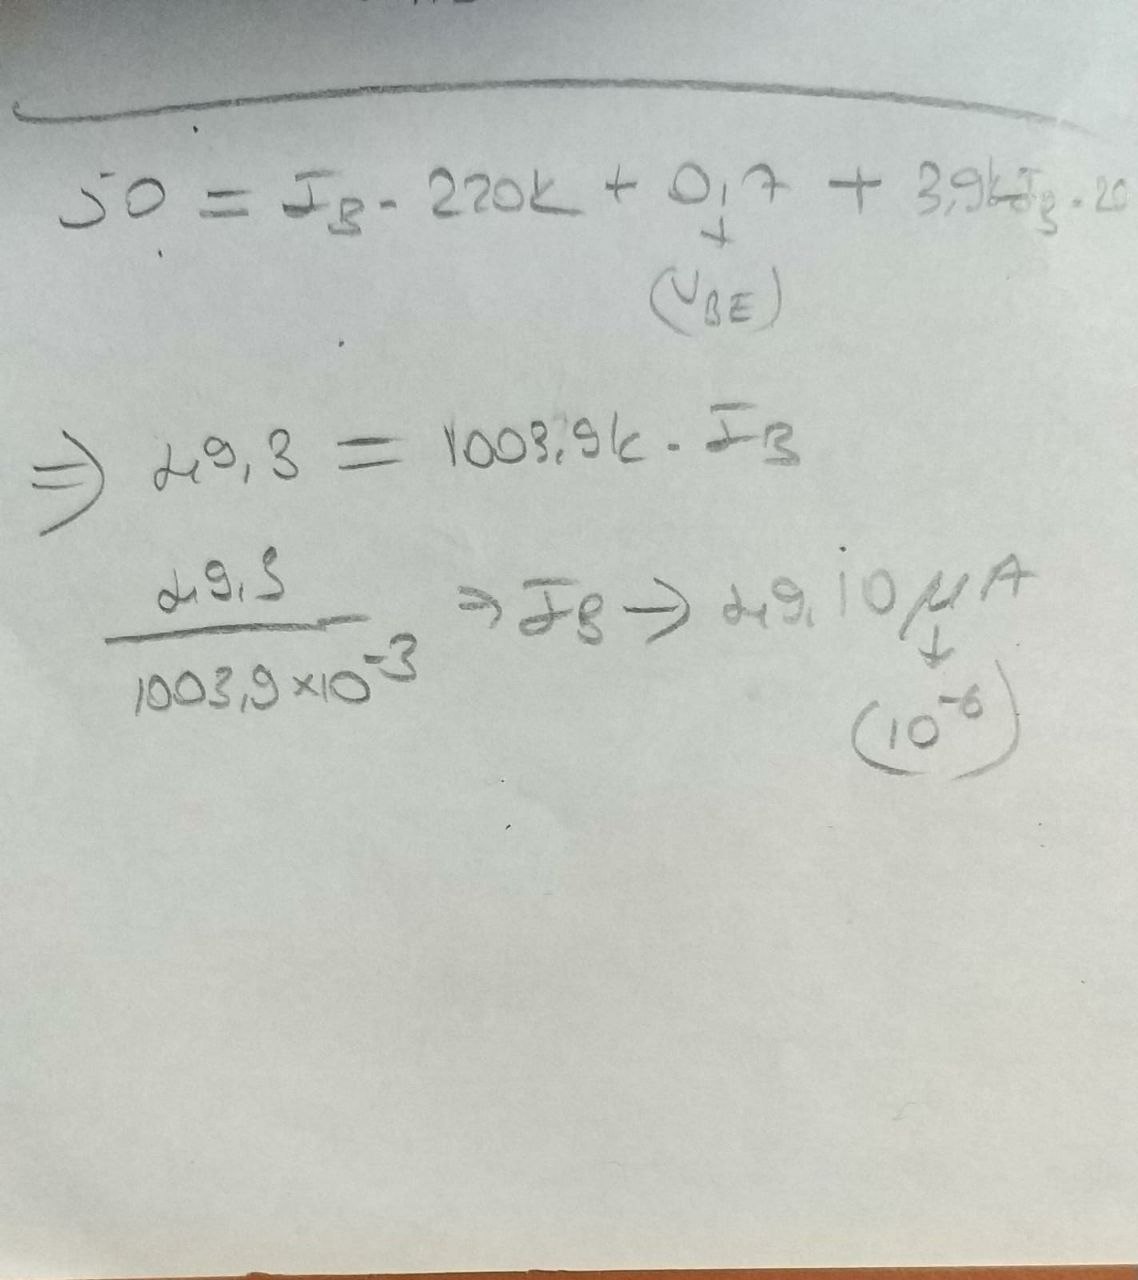 50 = IB · 220k + 0,7 + 3,9k IB · 20
(VBE)
⇒ 49,3 = 1003,9k · IB
49,3 / 1003,9 × 10⁻³ ⇒ IB → 49,10 μA
(10⁻⁶)